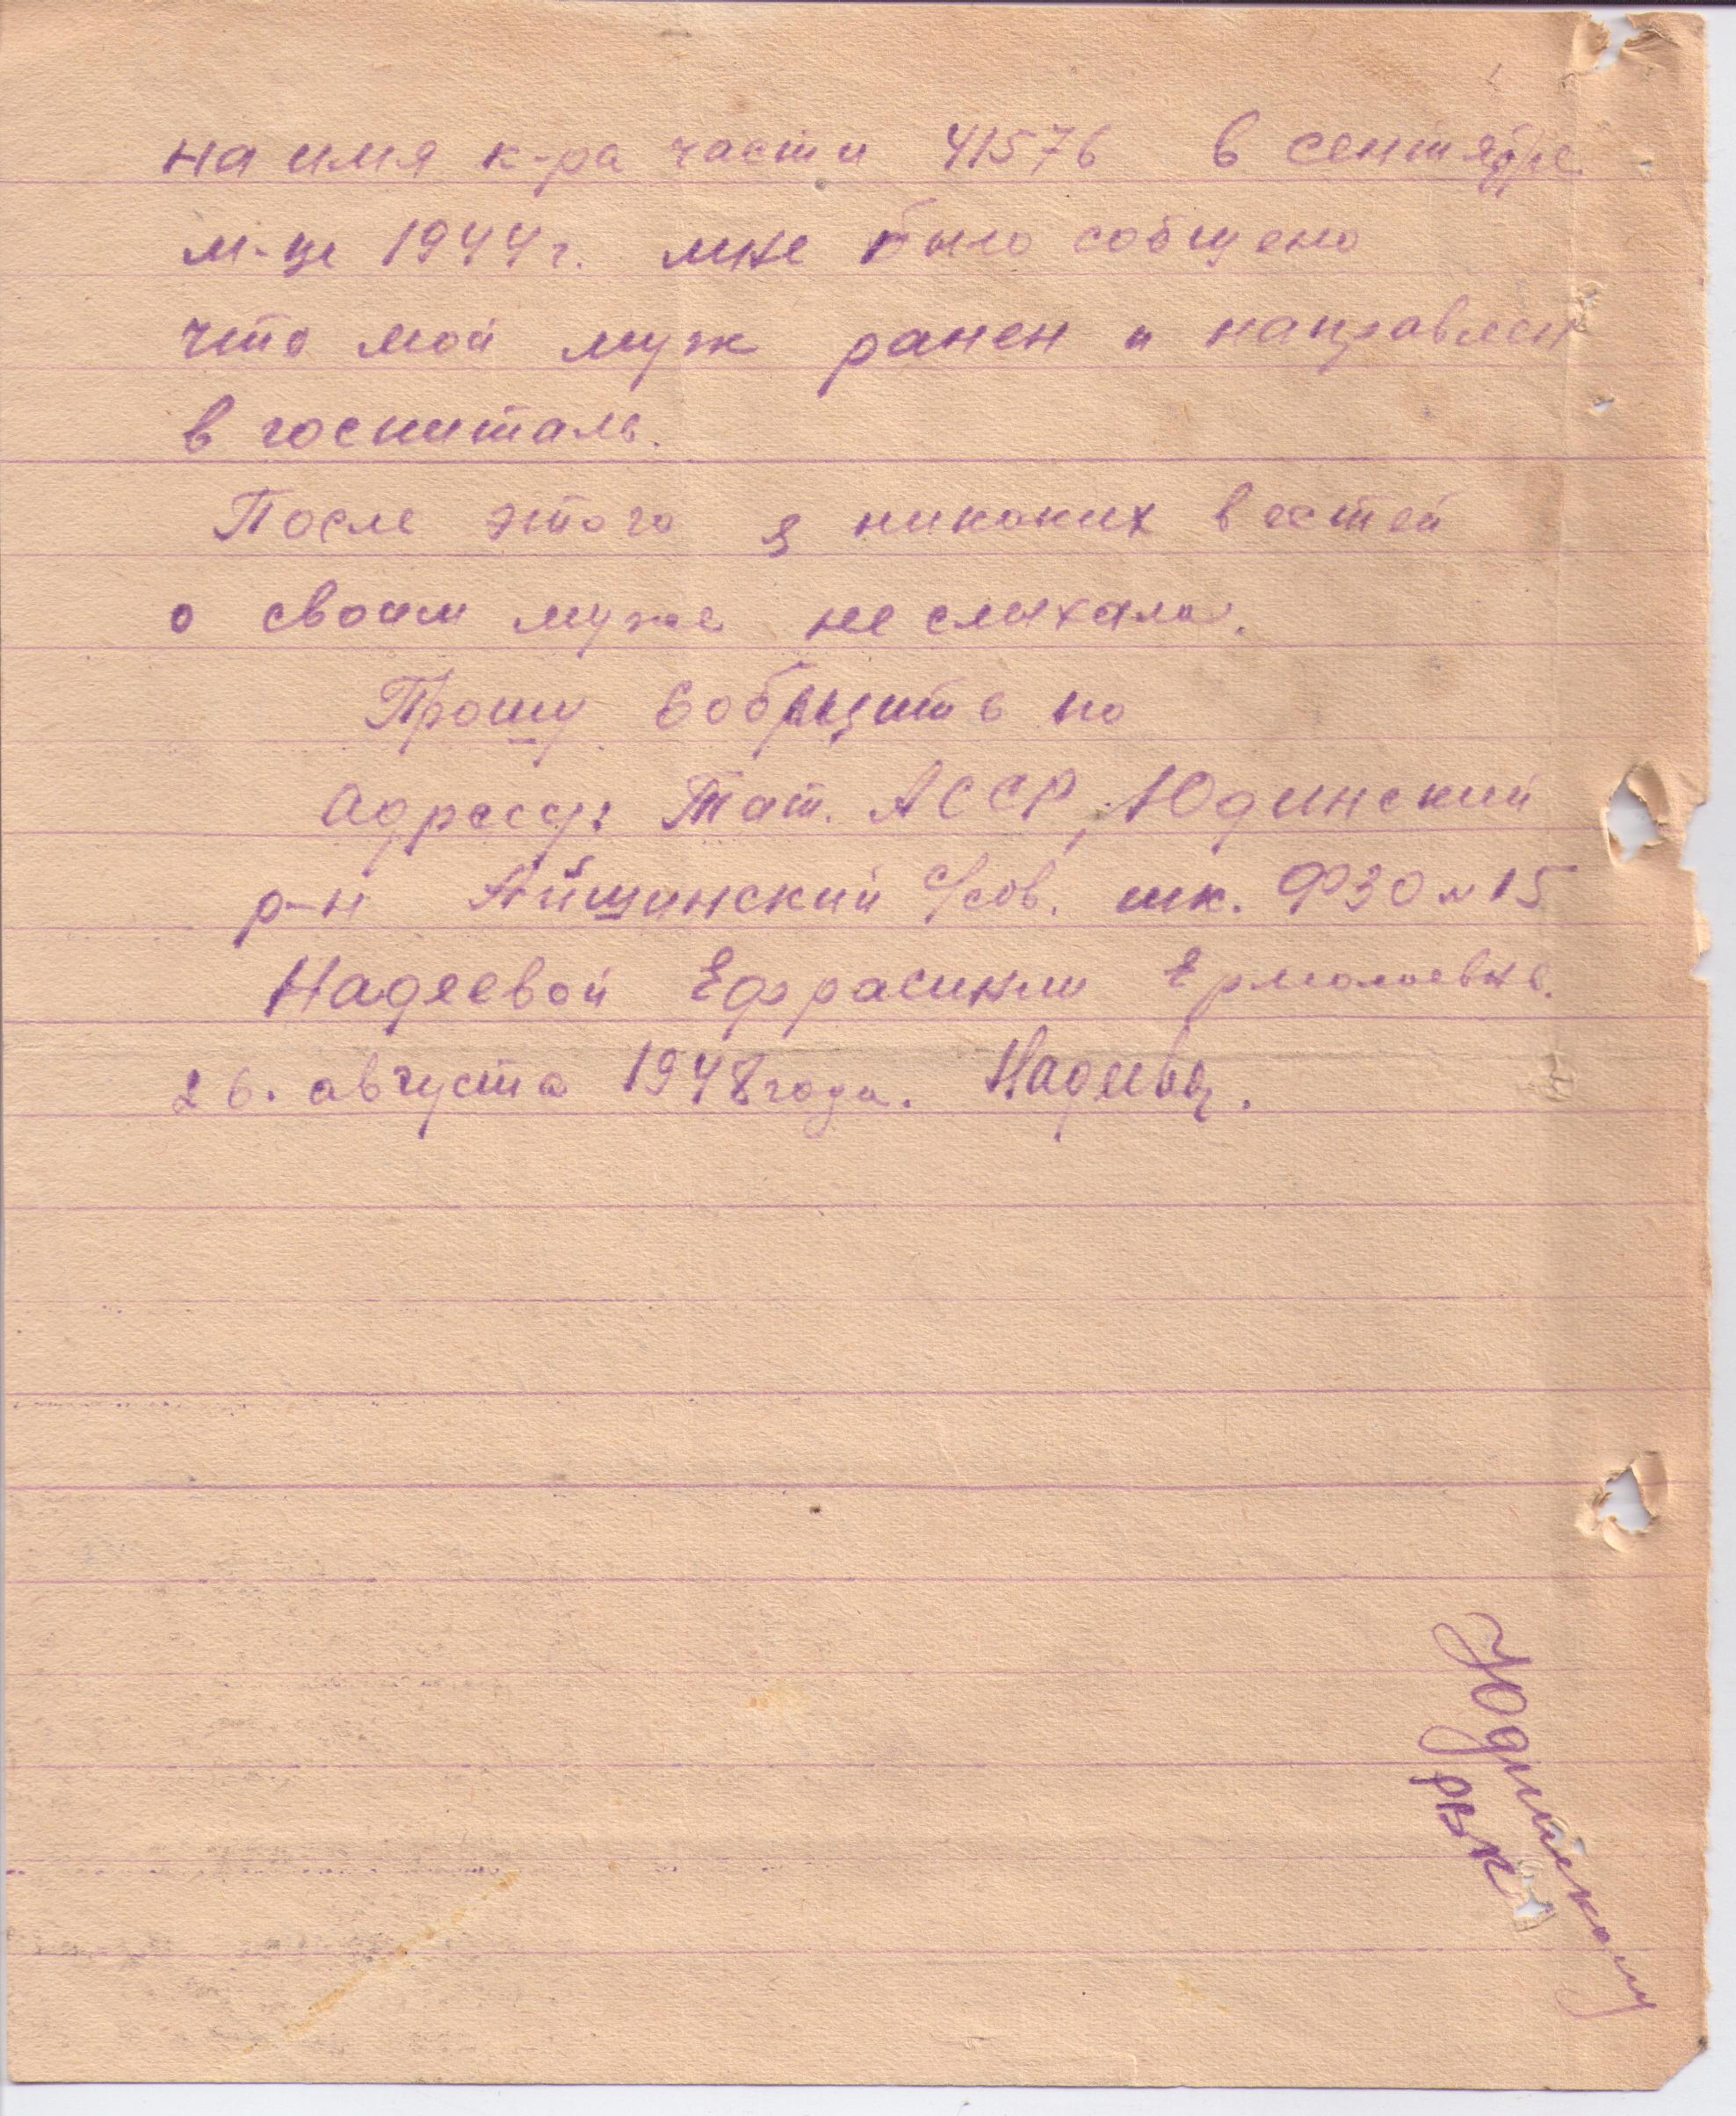 на имя к-ра части 41576 в сентябре
м-це 1944 г. мне было собщено
что мой муж ранен и направлен
в госпиталь.
После этого я никаких вестей
о своим муже не слыхала.
Прошу собщить по
адресу: Тат. АССР, Юдинский
р-н Айшинский с/сов. шк. ФЗО № 15
Надеевой Ефрасинии Ермолаевне.
26. августа 1948 года. Надеева.
Юдинскому
РВК